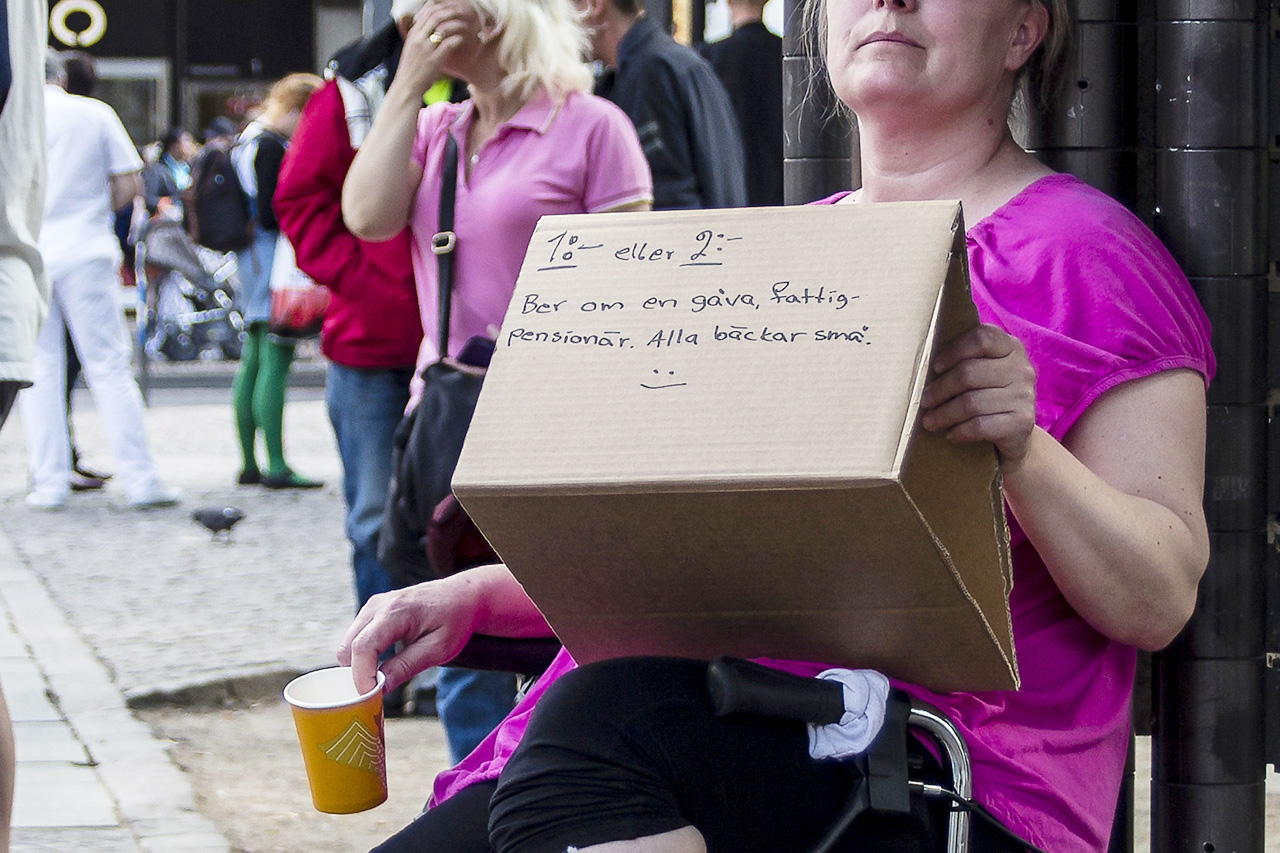 1:- eller 2:-
Ber om en gåva, fattig-
pensionär. Alla bäckar små.